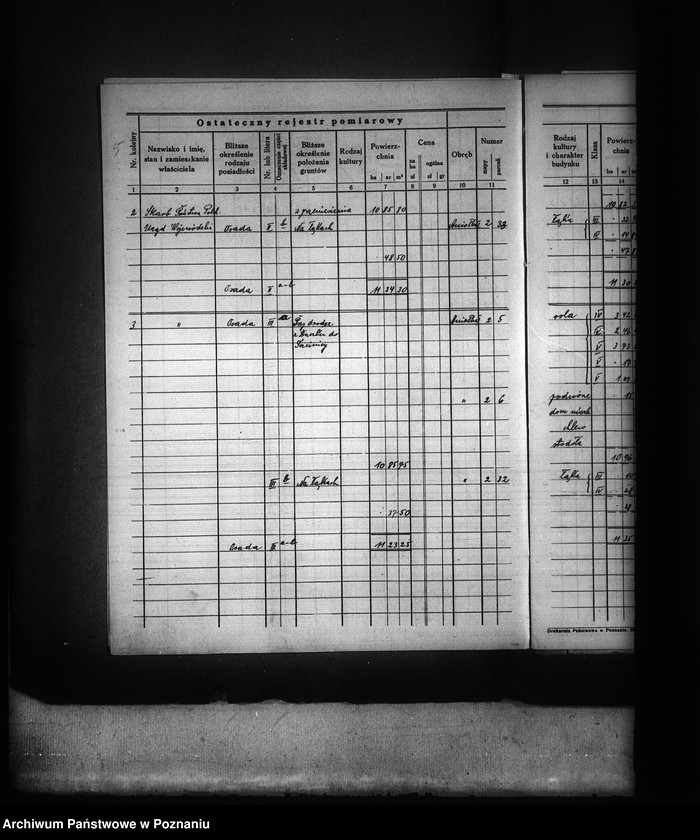 Ostateczny rejestr pomiarowy
Nr. kolejny
Nazwisko i imię, stan i zamieszkanie właściciela
Bliższe określenie rodzaju posiadłości
Nr. lub litera
Oznaczenie części składowej
Bliższe określenie położenia gruntów
Rodzaj kultury
Powierzchnia
ha ar m²
Cena
za ha zł
ogólna
zł gr
Obręb
Numer
mapy
parceli
Rodzaj kultury i charakter budynku
Klasa
Powierzchnia
ha ar
1 2 3 4 5 6 7 8 9 10 11 12 13 14
2 Skarb Państwa Pol. z przeniesienia 10 85 80
Urząd Wojewódzki Osada V b Na Łąkach 2 łąka III
IV
48 50
Osada V a-b 11 34 30 11 30
3 " Osada III a Przy drodze 2 5 rola IV 3 42
z do IV 2 46
V 3 93
V
V 1 01
" 2 6 podwórze
dom mieszk
chlew
stodoła
10 85 75 10 96
III b Na Łąkach " 2 32 łąka III
IV
37 50
Osada III a-b 11 23 25 11 35
Drukarnia Państwowa w Poznaniu.
Archiwum Państwowe w Poznaniu